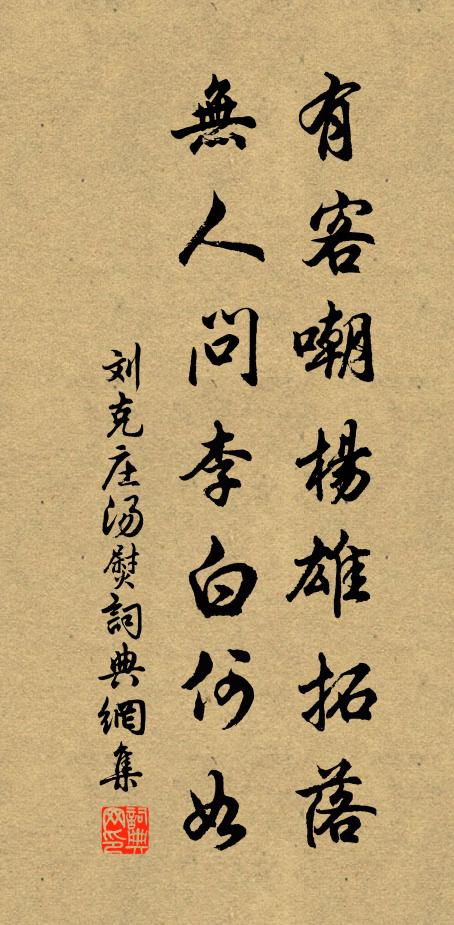 有客嘲楊雄拓落
無人問李白何如
刘克庄汤熨詞典網集
詞典网印